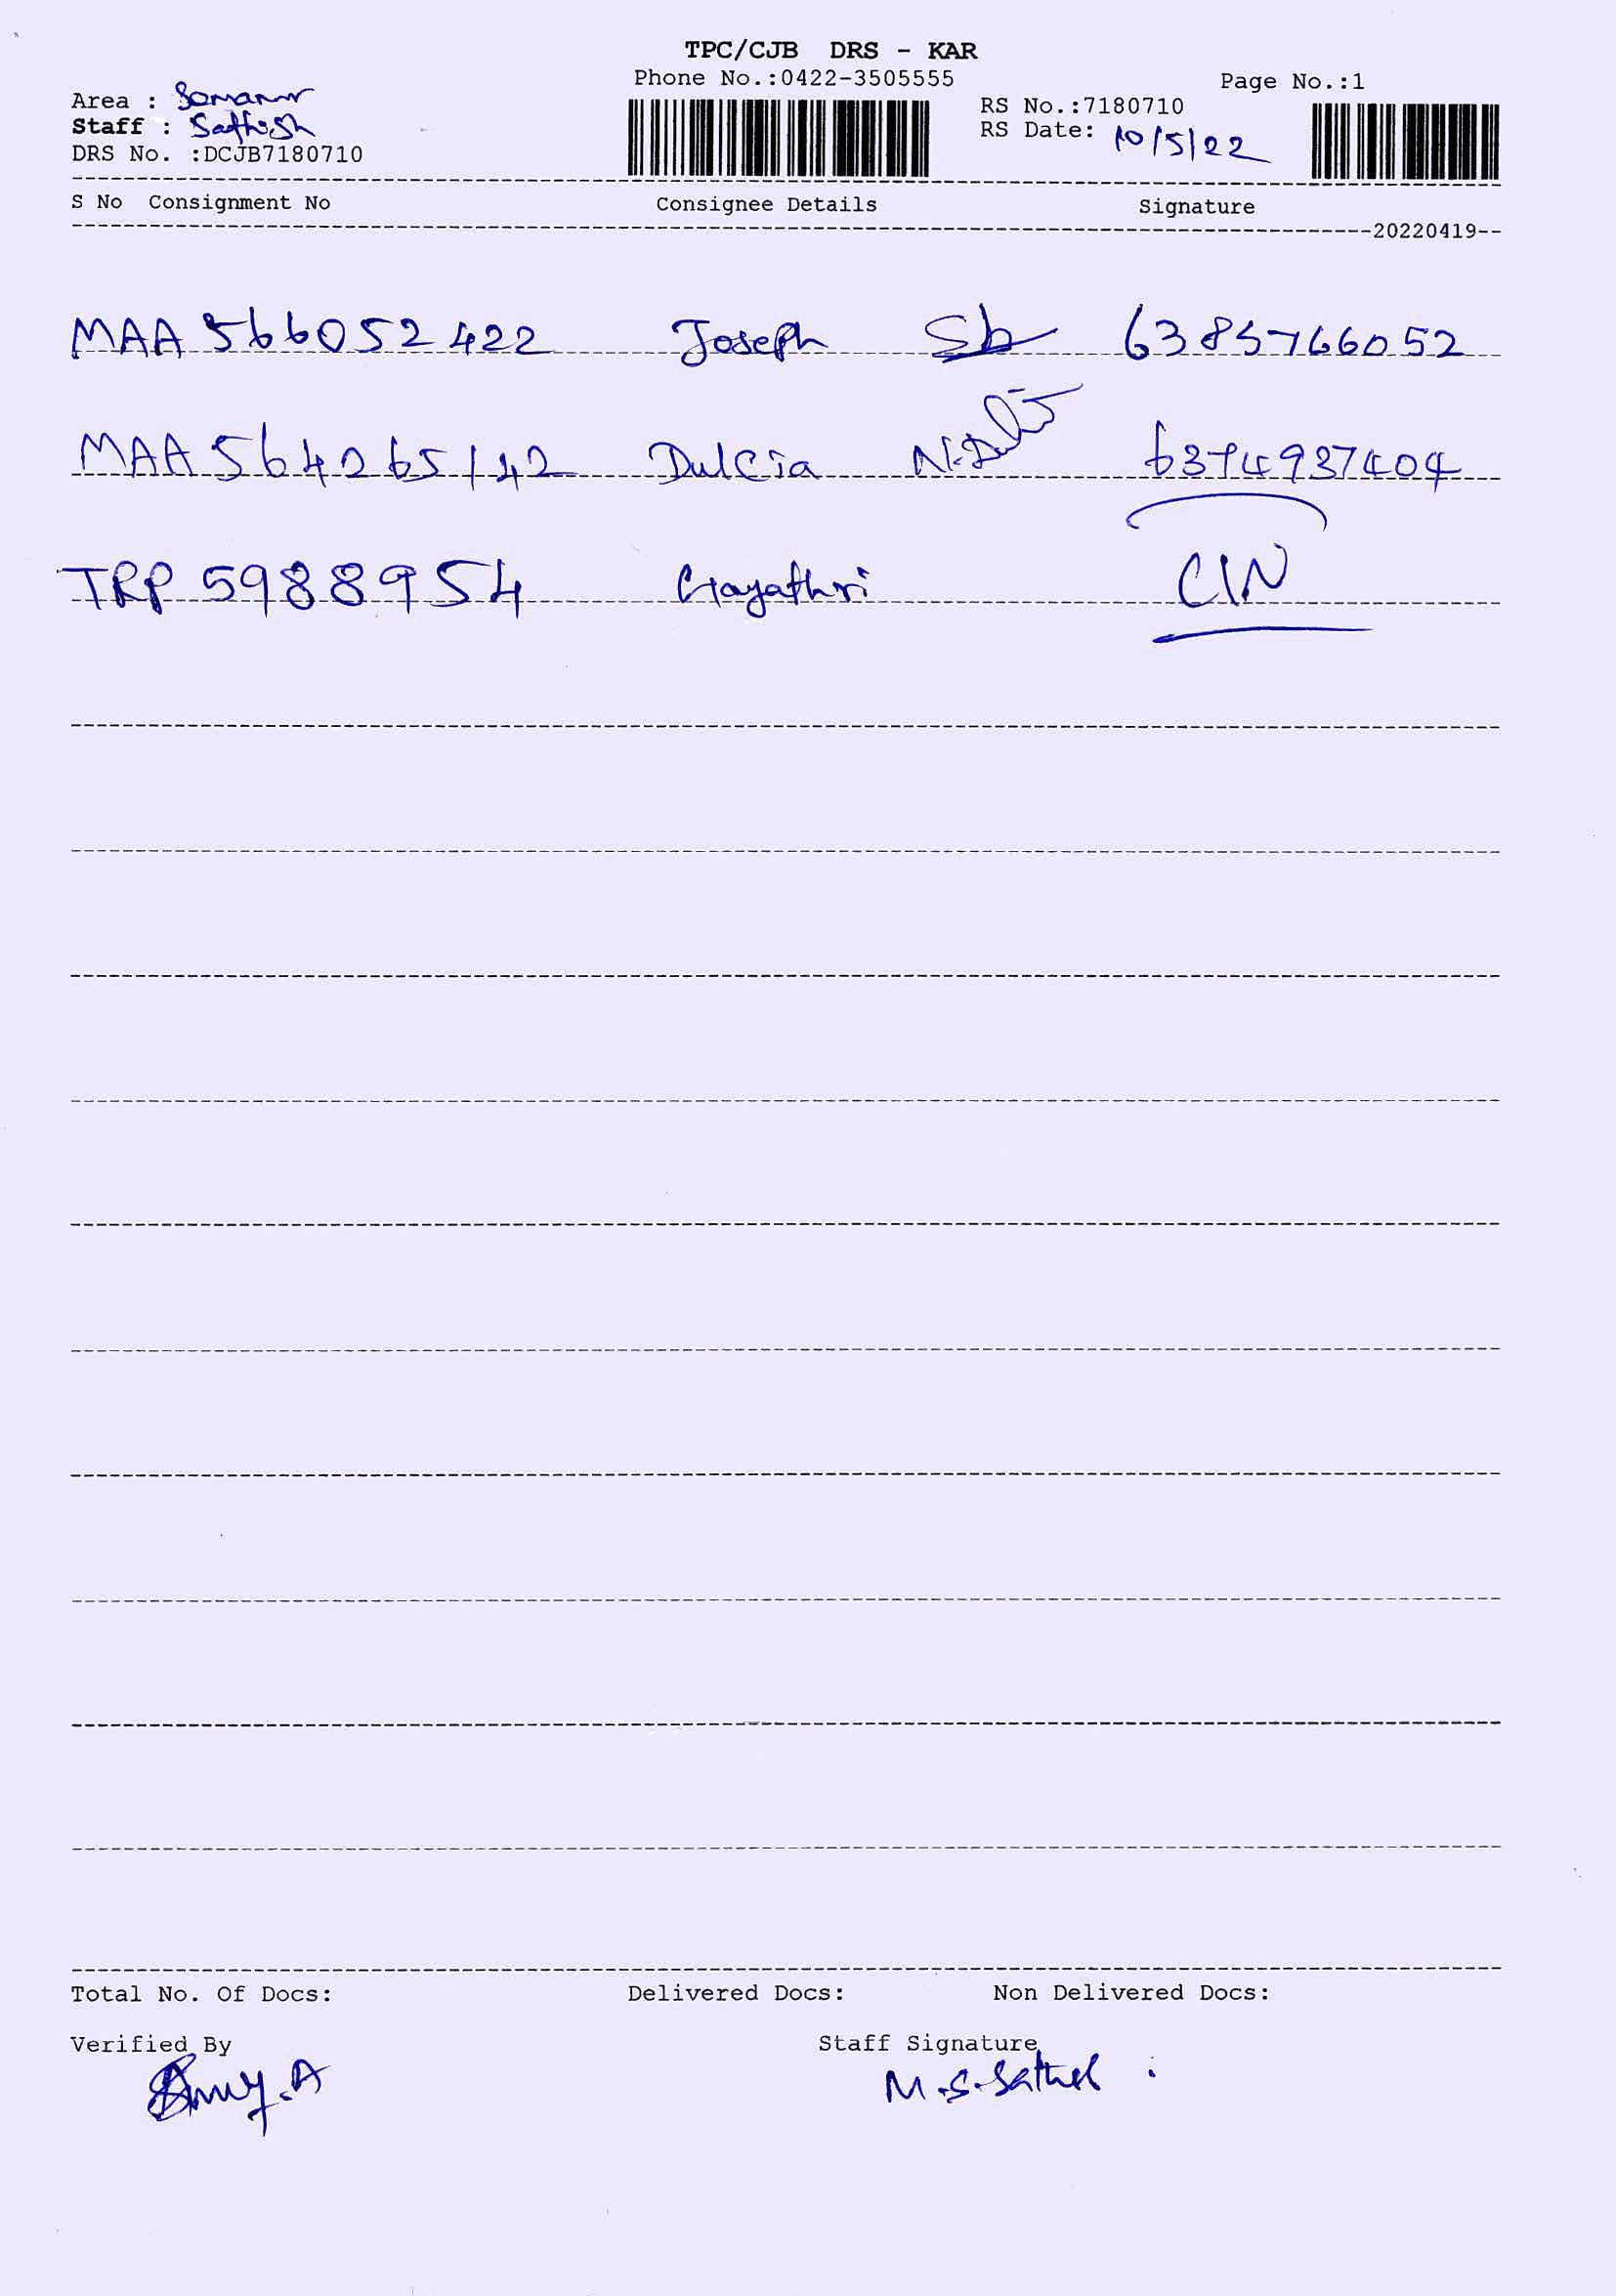 TPC/CJB DRS - KAR
Phone No.:0422-3505555
Page No.:1
Area : Somanur
Staff : Sathish
DRS No. :DCJB7180710
RS No.:7180710
RS Date: 10/5/22
S No Consignment No Consignee Details Signature
20220419
MAA 566052422 Joseph 6385766052
MAA 564265142 Dulcia 6374937404
TRP 5988954 Gayathri CIN
Total No. Of Docs: Delivered Docs: Non Delivered Docs:
Verified By Staff Signature
M.S.Sathish